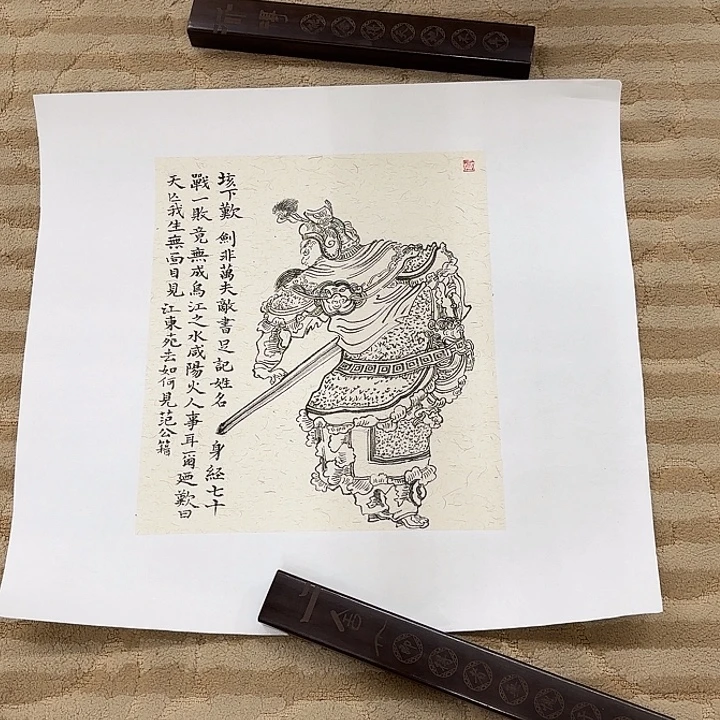 垓下歎 劍非萬夫敵書足記姓名 身經七十
戰一敗竟無成烏江之水咸陽火人事耳爾廼歎曰
天亾我生無面目見江東死去如何見范公籍